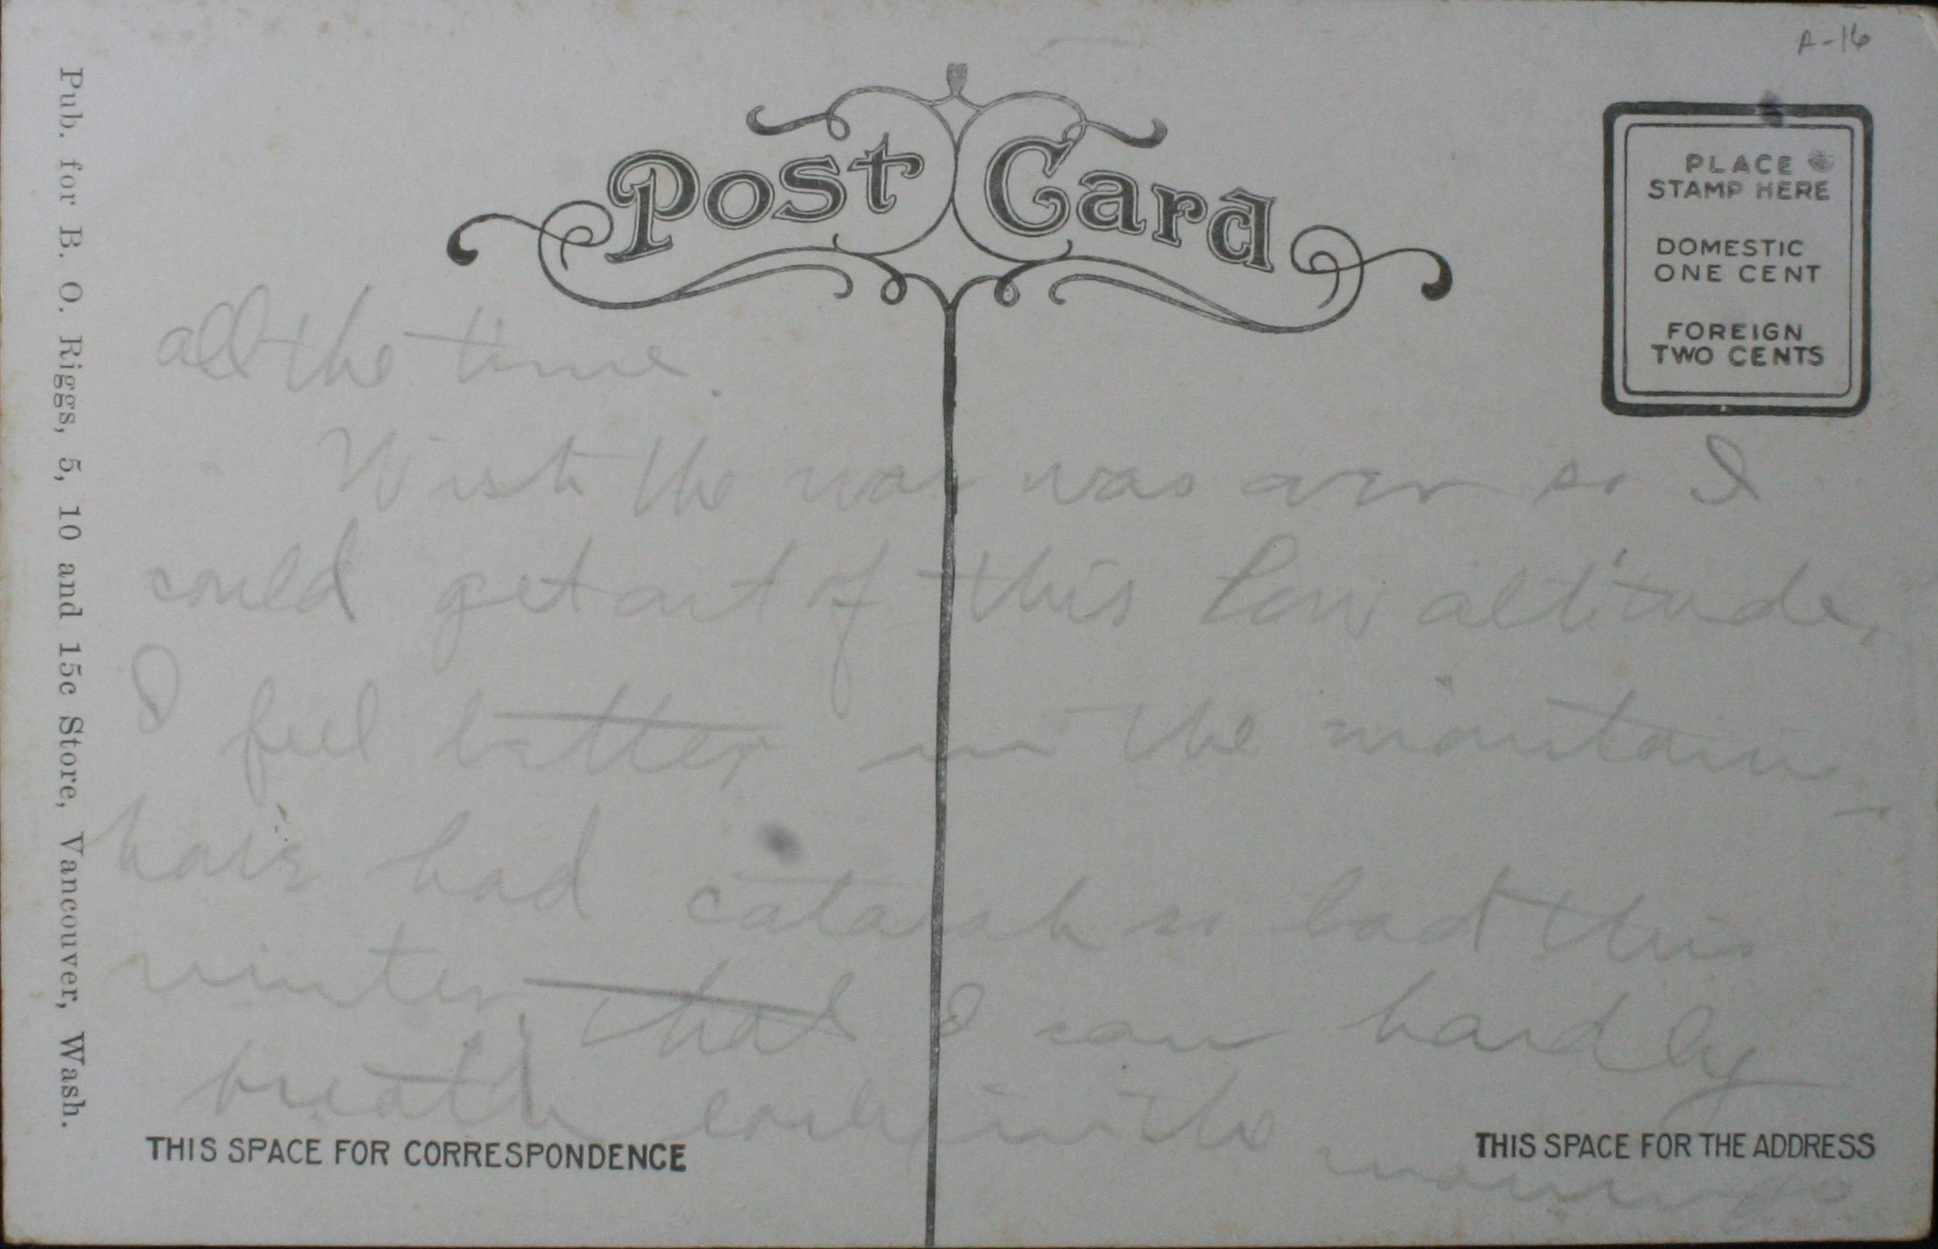 A-16
Post Card
PLACE
STAMP HERE
DOMESTIC
ONE CENT
FOREIGN
TWO CENTS
Pub. for B. O. Riggs, 5, 10 and 15c Store, Vancouver, Wash.
all the time.
Wish the war was over so I
could get out of this low altitude,
I feel better in the mountains
have had catarrh so bad this
winter that I can hardly
breath early in the
mornings
THIS SPACE FOR CORRESPONDENCE
THIS SPACE FOR THE ADDRESS